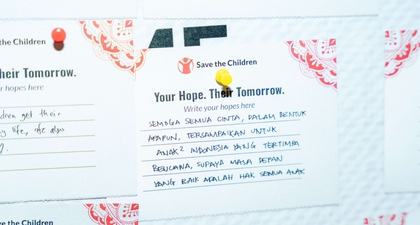 the Children
Their Tomorrow.
hopes here
get their
life,
Save the Children
Your Hope. Their Tomorrow.
Write your hopes here
SEMOGA SEMUA CINTA, DALAM BENTUK
APAPUN, TERSAMPAIKAN UNTUK
ANAK² INDONESIA YANG TERTIMPA
BENCANA, SUPAYA MASA DEPAN
YANG BAIK ADALAH HAK SEMUA ANAK
the Children
Save the Children